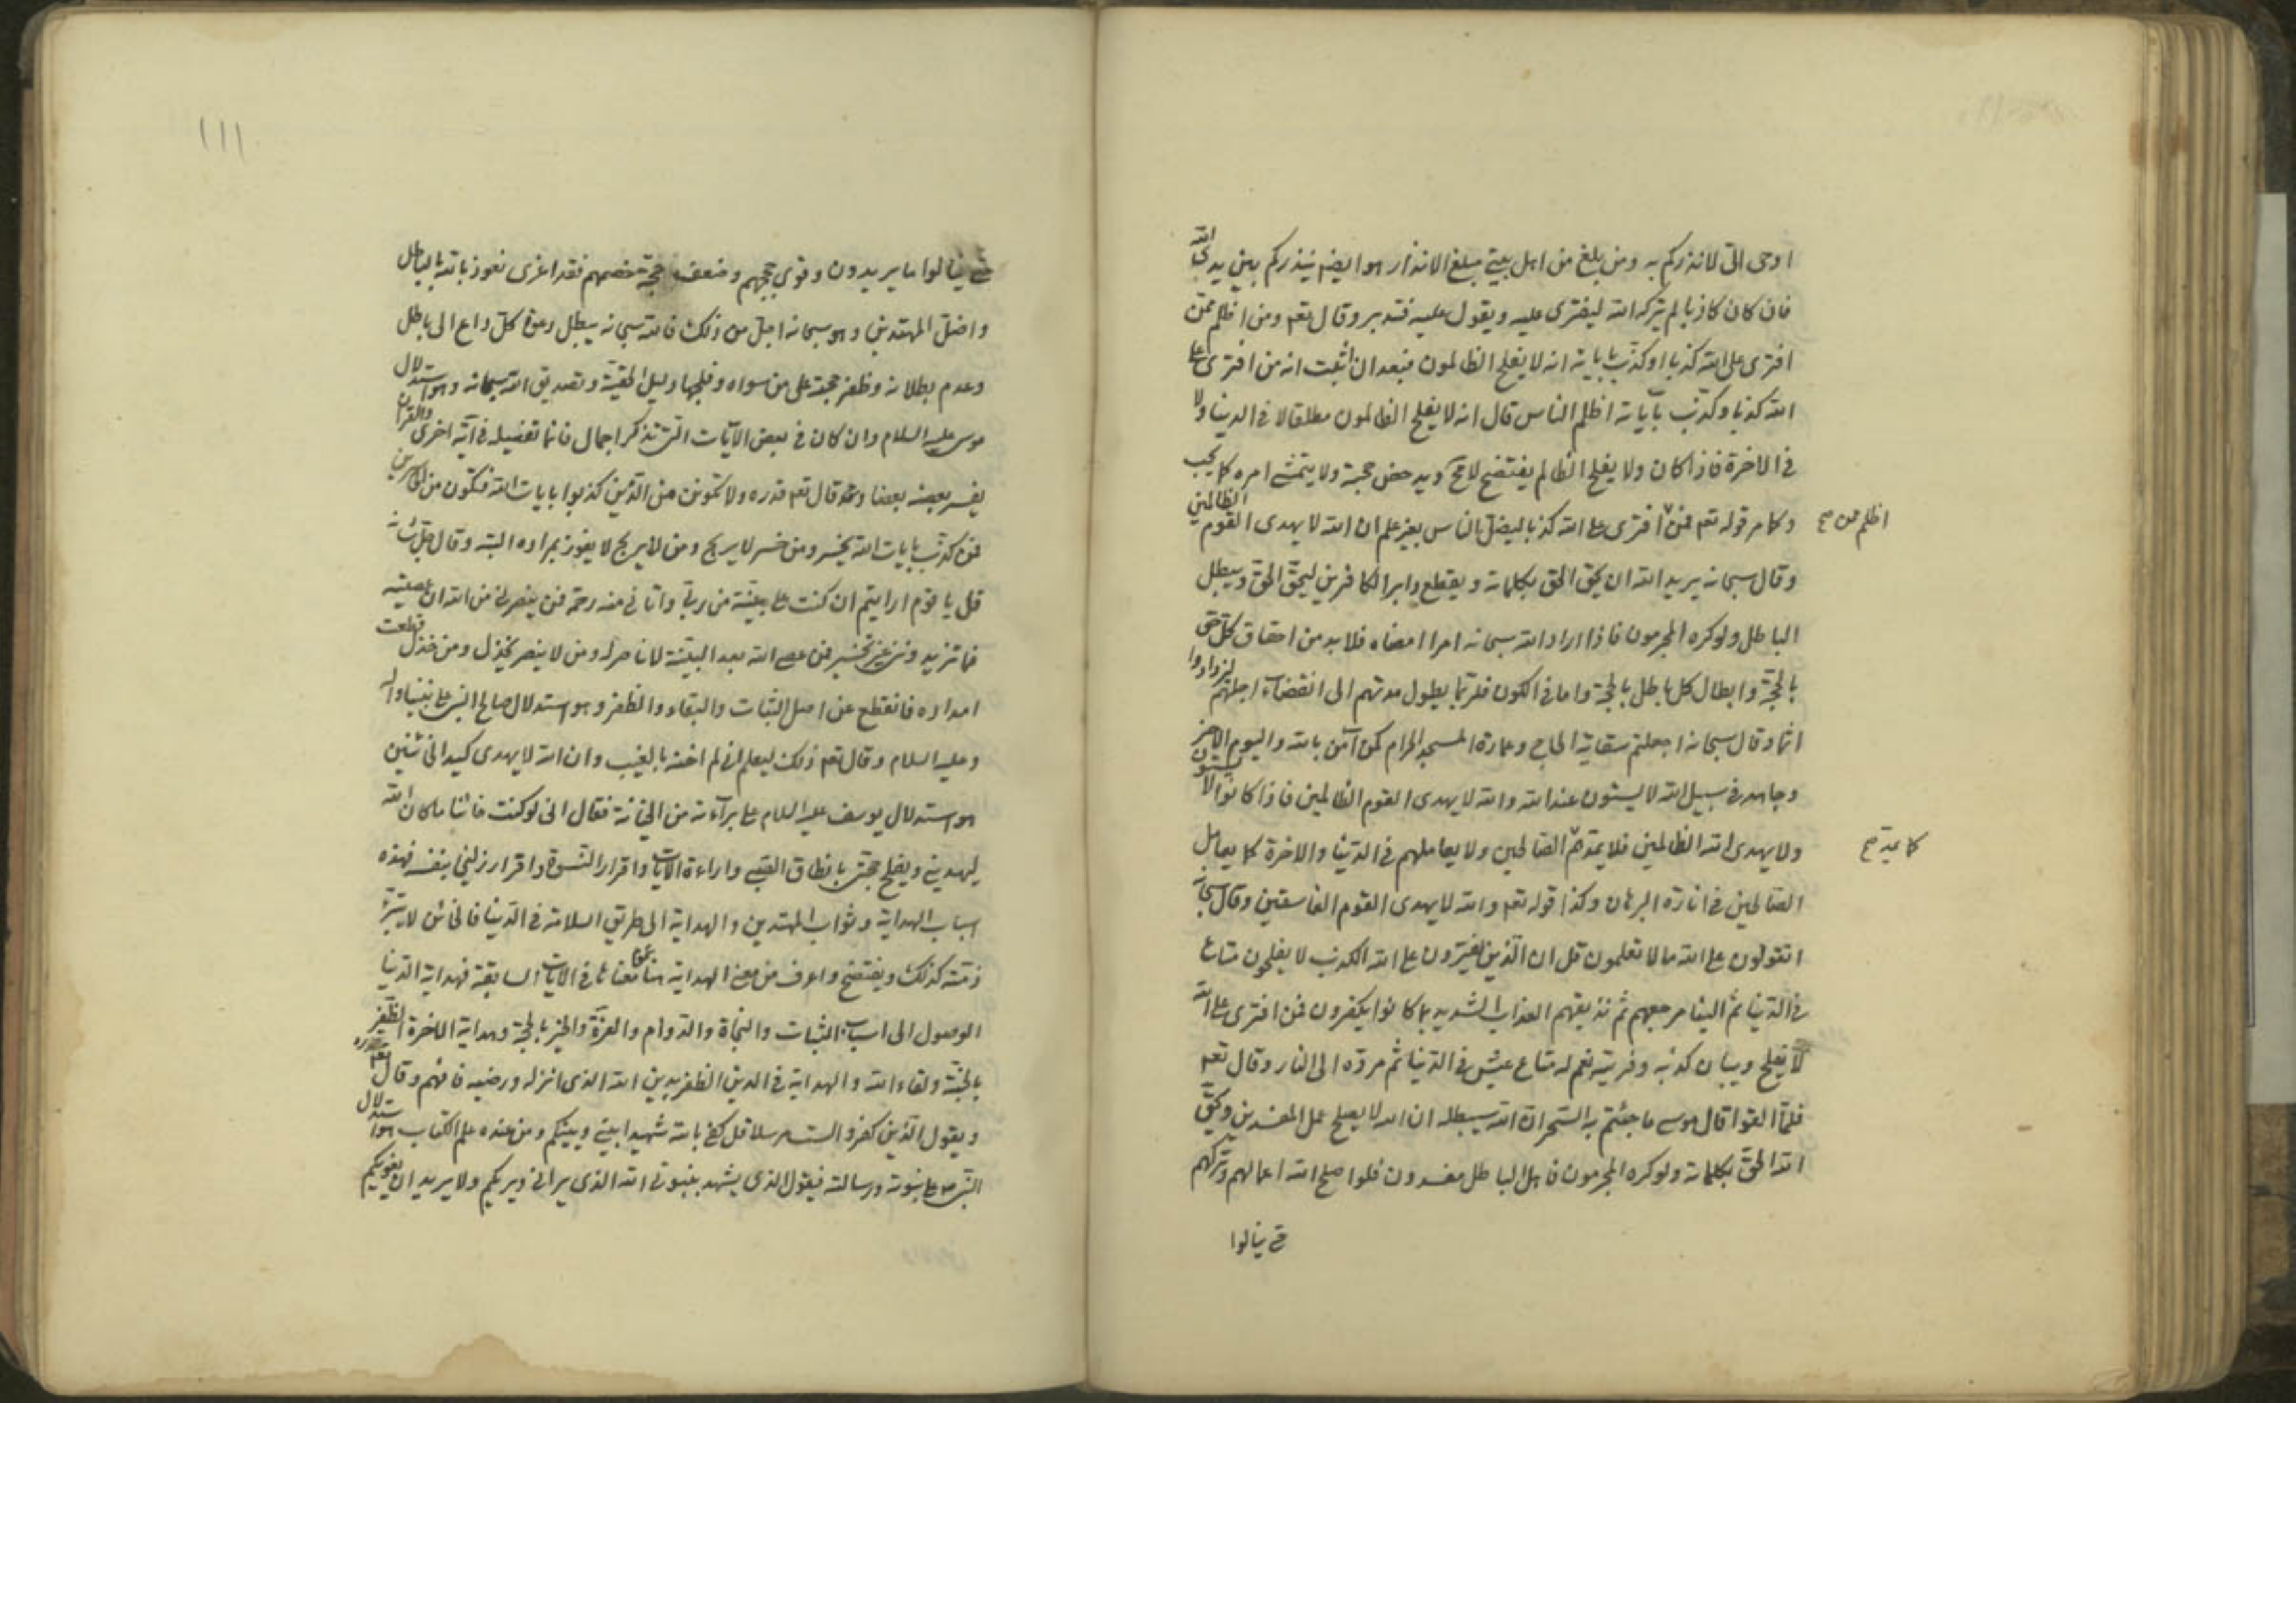 اوحى الىّ لانذركم به ومن بلغ من اهل بيتى مبلغ الانذار هو ايضا ينذركم بين يدى الله
فان كان كاذبا لم يتركه الله ليفترى عليه ويقول عليه فتدبر وقال تعم ومن اظلم ممّن
افترى على الله كذبا او كذّب باياته انه لا يفلح الظالمون فبعد ان اثبت انه من افترى على
الله كذبا وكذّب بآياته اظلم الناس قال انه لا يفلح الظالمون مطلقا لا فى الدينا ولا
فى الاخرة فاذا كان ولا يفلح الظالم يفتضح لامحّ ويدحض حجبته ولا يتمشى امره كما يحب
وكما مر قوله تعم فمن افترى على الله كذبا ليضلّ الناس بغير علم ان الله لا يهدى القوم الظالمين
اظلم ممن صح
وقال سبحانه يريد الله ان يحق الحق بكلماته ويقطع دابر الكافرين ليحقّ الحقّ ويبطل
الباطل ولو كره المجرمون فاذا اراد الله سبحانه امرا امضاه فلابد من احقاق كلّ حق
بالحجّة وابطال كل باطل بالحجّة واما فى الكون فلربّما يطول مدتهم الى انقضاء اجلهم ليزدادوا
اثما وقال سبحانه اجعلتم سقاية الحاج وعمارة المسجد الحرام كمن آمن بالله واليوم الاخر
وجاهد فى سبيل الله لا يستون عند الله والله لا يهدى القوم الظالمين فاذا كانوا لا يستوون
ولا يهدى الله الظالمين فلا يمدّهم الصّالحين ولا يعاملهم فى الدّينا والاخرة كما يعامل
كما يمدّ صح
الصّالحين فى انارة البرهان وكذا قوله تعم والله لا يهدى القوم الفاسقين وقال سبحانه
اتقولون على الله ما لا تعلمون قل ان الّذين يفترون على الله الكذب لا يفلحون متاع
فى الدّينا ثمّ الينا مرجعهم ثم نذيقهم العذاب الشديد بما كانوا يكفرون فمن افترى على الله
لا يفلح ويبان كذبه وفريته نعم له متاع عيش فى الدّينا ثمّ مردّه الى النار وقال تعم
فلمّا القوا قال موسى ما جئتم به السّحر ان الله سيبطله ان الله لا يصلح عمل المفسدين ويحقّ
الله الحقّ بكلماته ولو كره المجرمون فاهل الباطل مفسدون فلو اصلح الله اعمالهم وتركهم
حتى ينالوا
١١١
حتى ينالوا ما يريدون وقوى حججهم وضعف حجّة خصمهم فقد اغرى نعوذ بالله بالباطل
واضلّ المهتدين وهو سبحانه اجلّ من ذلك فالله سبحانه يبطل دعوة كلّ داع الى باطل
وعدم بطلانه وظفر حجته على من سواه وفلجها دليل الحقيّة وتصديق الله سبحانه وهو استدلال
موسى عليه السلام وان كان فى بعض الآيات التى نذكر اجمال فانما تفصيله فى آية اخرى والقران
يفسر بعضه بعضا وقال تعم قدره ولا تكونن من الّذين كذبوا بايات الله فتكون من الخاسرين
فمن كذّب بايات الله يخسر ومن خسر لا يربح ومن لا يربح لا يفوز بمراده البتة وقال جلّ شانه
قل يا قوم ارايتم ان كنت على بيّنة من ربّى واتانى منه رحمة فمن ينصرنى من الله ان عصيته
فما تزيدوننى غير تخسير فمن عصى الله بعد البيّنة لا ناصر له ومن لا ينصر يخذل ومن خذل قطعت
امداده فانقطع عن اصل الثبات والبقاء والظفر وهو استدلال صالح النبى على نبينا وآله
وعليه السلام وقال تعم ذلك ليعلم انى لم اخنه بالغيب وان الله لا يهدى كيد الخائنين
هو استدلال يوسف عليه السلام على برآءته من الخيانة فقال انى لو كنت خائنا ما كان الله
ليهدينى ويفلج حجتى بانطاق الصّبى واراءة الآيات واقرار النّسوة واقرار زليخا بنفسه فهذه
اسباب الهداية وثواب المهتدين والهداية الى طريق السلامة فى الدّينا فالخائن لا يتبرّء
ذمّته كذلك ويفتضح واعرف من معنى الهداية هنا معناها فى الآيات السابقة فهداية الدّينا
الوصول الى اسباب الثبات والنجاة والدوام والعزّة والخير بالحجّة وهداية الاخرة الظّفر
بالجنّة ولقاء الله والهداية فى الدين الظفر بدين الله الذى انزله ورضيه فافهم وقال تعم
ويقول الّذين كفروا لست مرسلا قل كفى بالله شهيدا بينى وبينكم ومن عنده علم الكتاب هو استدلال
النّبى ص على نبوته ورسالته فيقول الذى يشهد بنبوتى الله الذى يرانى ويريكم ولا يريد ان يغويكم